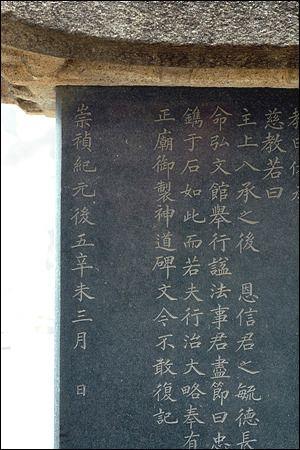 慈教若曰
主上入承之後 恩信君之毓德長
命弘文館舉行謚法事君盡節曰忠
鐫于石如此而若夫行治大略奉有
正廟御製神道碑文今不敢復記
崇禎紀元後五辛未三月 日